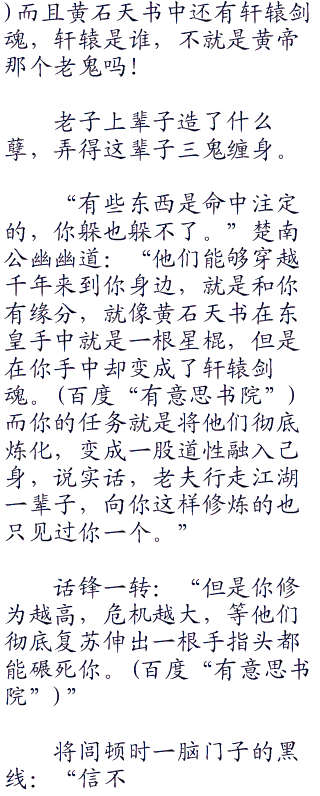 )而且黄石天书中还有轩辕剑
魂，轩辕是谁，不就是黄帝
那个老鬼吗！
老子上辈子造了什么
孽，弄得这辈子三鬼缠身。
“有些东西是命中注定
的，你躲也躲不了。”楚南
公幽幽道：“他们能够穿越
千年来到你身边，就是和你
有缘分，就像黄石天书在东
皇手中就是一根星棍，但是
在你手中却变成了轩辕剑
魂。(百度“有意思书院”)
而你的任务就是将他们彻底
炼化，变成一股道性融入己
身，说实话，老夫行走江湖
一辈子，向你这样修炼的也
只见过你一个。”
话锋一转：“但是你修
为越高，危机越大，等他们
彻底复苏伸出一根手指头都
能碾死你。(百度“有意思书
院”)”
将闾顿时一脑门子的黑
线：“信不